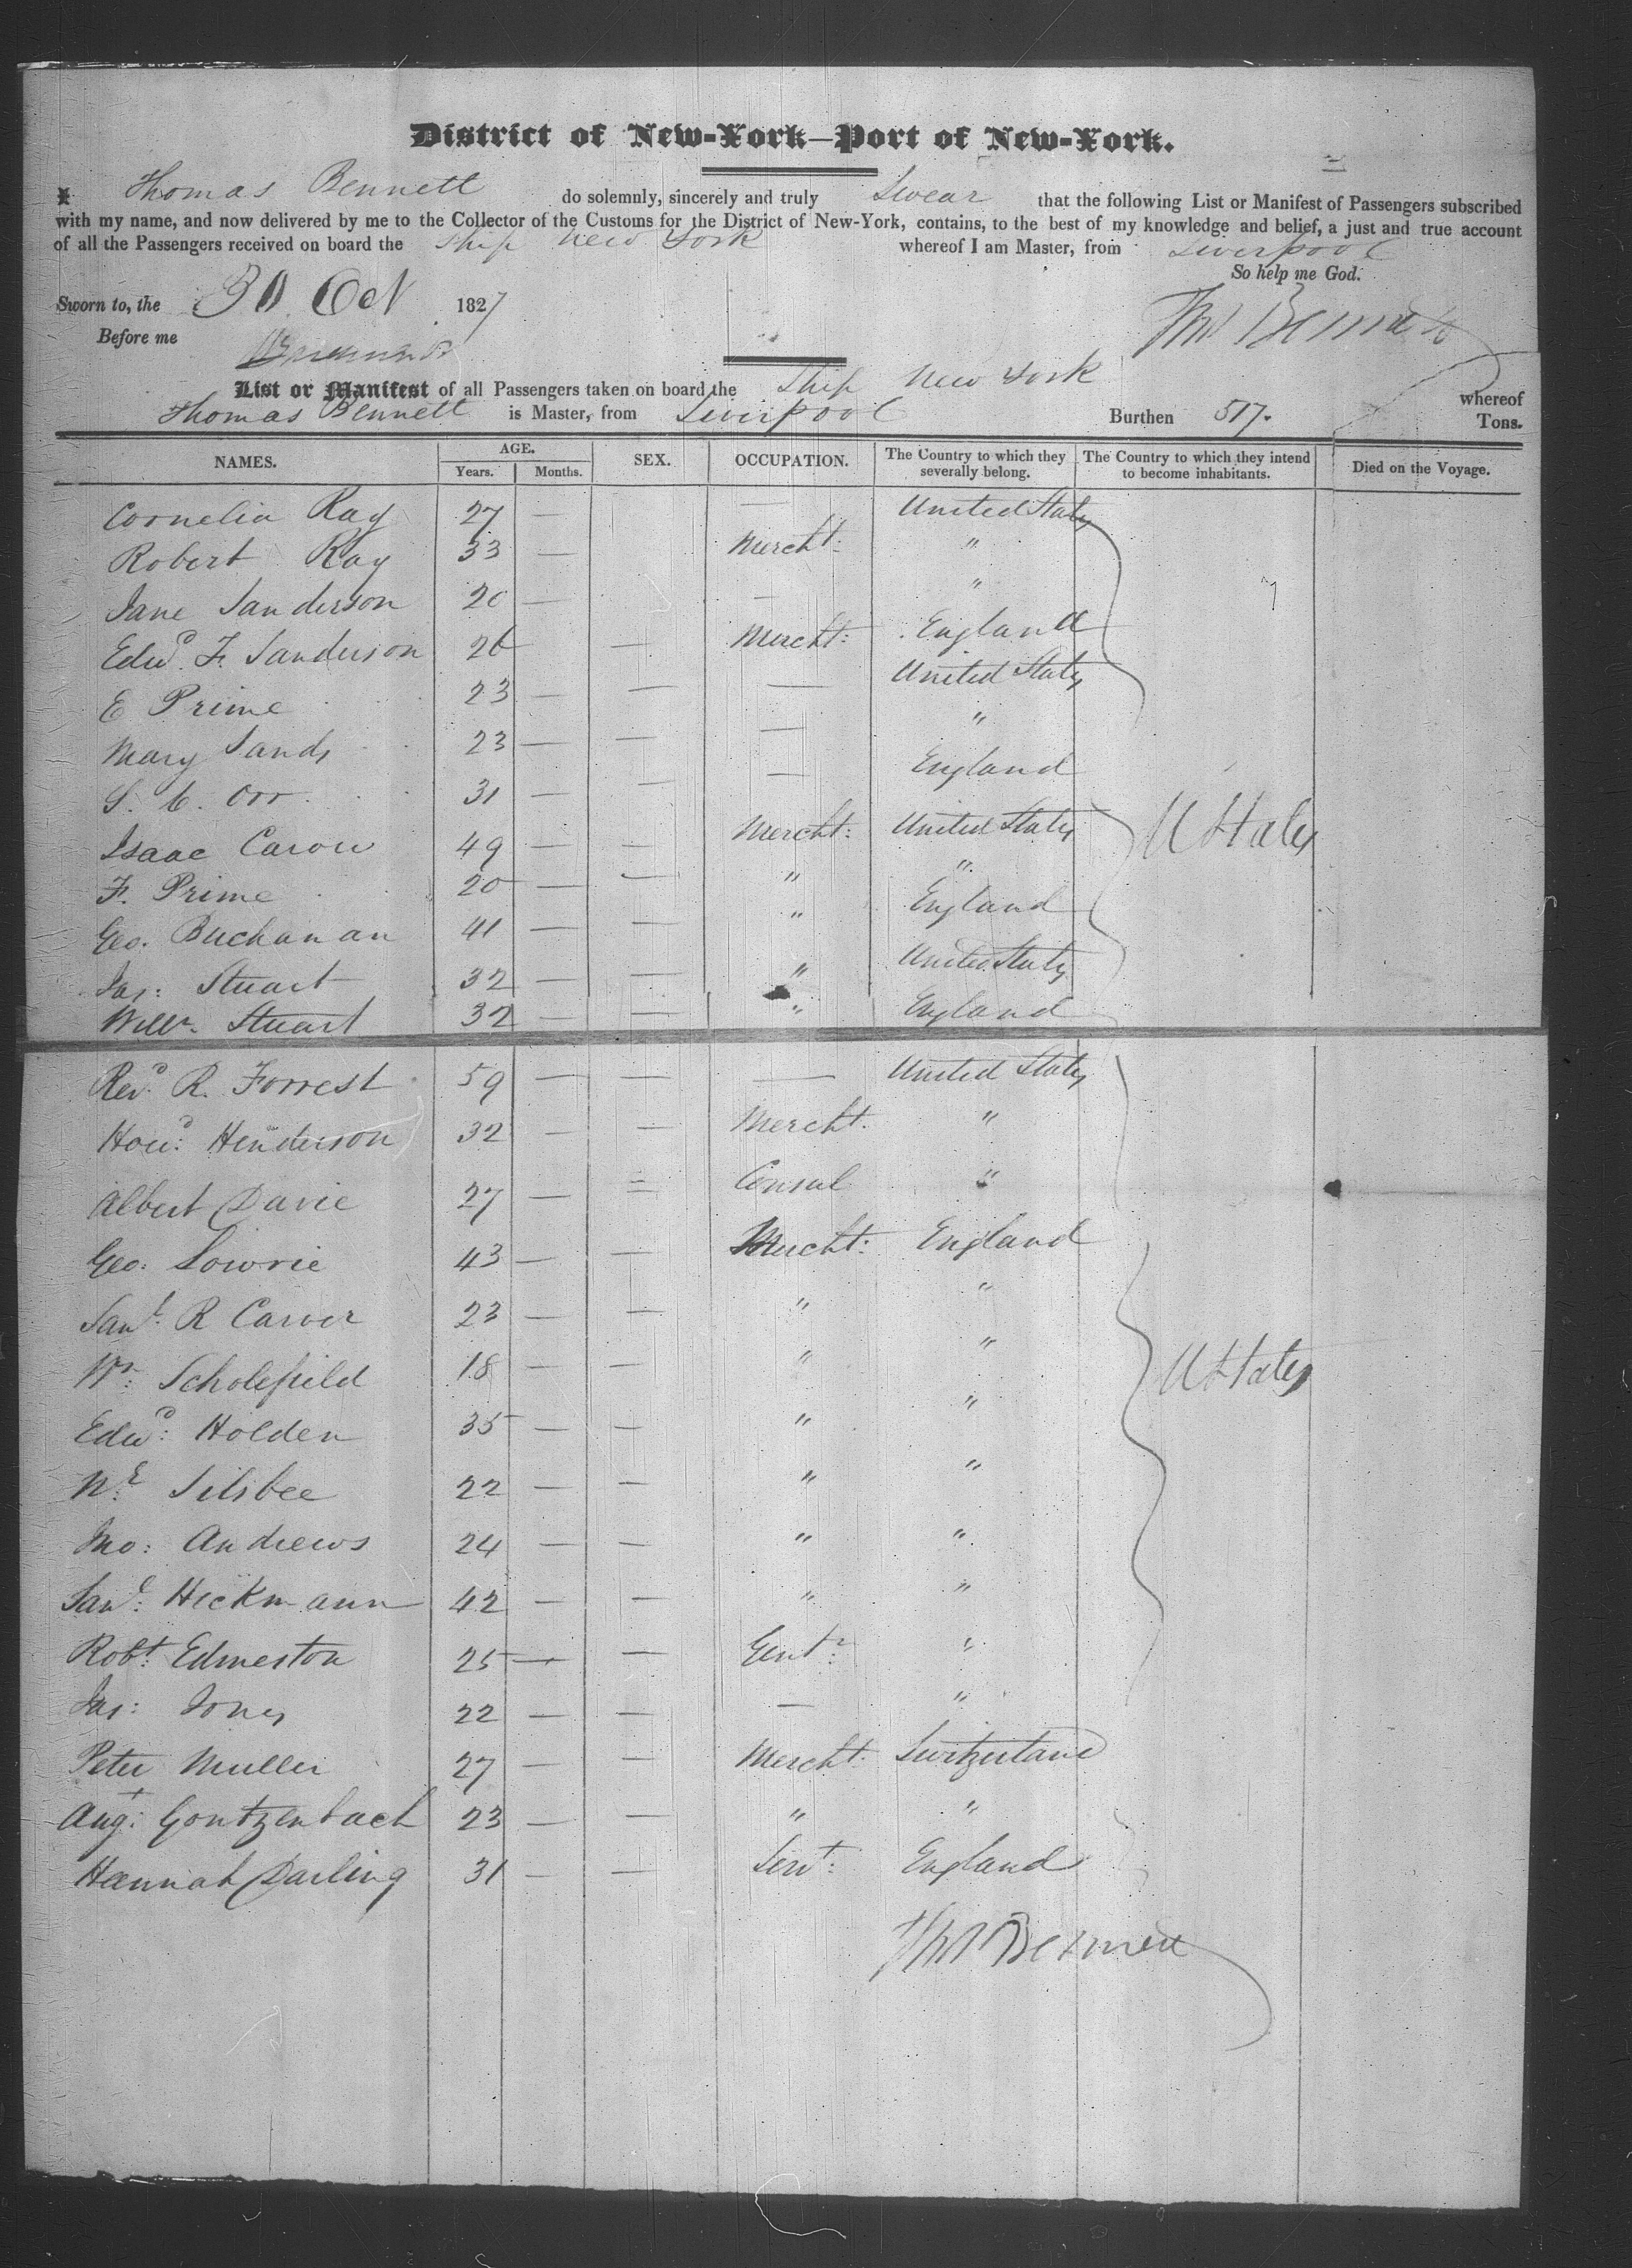 District of New-York—Port of New-York.
I Thomas Bennett do solemnly, sincerely and truly Swear that the following List or Manifest of Passengers subscribed
with my name, and now delivered by me to the Collector of the Customs for the District of New-York, contains, to the best of my knowledge and belief, a just and true account
of all the Passengers received on board the Ship New York whereof I am Master, from Liverpool
So help me God.
Sworn to, the 30 Oct 1827
Thos Bennett
Before me
List or Manifest of all Passengers taken on board the Ship New York whereof
Thomas Bennett is Master, from Liverpool Burthen 517. Tons.
NAMES. AGE. Years. Months. SEX. OCCUPATION. The Country to which they severally belong. The Country to which they intend to become inhabitants. Died on the Voyage.
Cornelia Ray 27 — — United States
Robert Ray 33 — Mercht: "
Jane Sanderson 20 — — "
Edwd. F. Sanderson 26 — Mercht: England
E Prime 23 — — — United States
Mary Sands 23 — — — "
S. C. Orr 31 — — — England
Isaac Carow 49 — — Mercht: United States U States
F. Prime 20 — — " "
Geo. Buchanan 41 — — " England
Jas: Stuart 32 — — " United States
Willm. Stuart 32 — — " England
Revd. R. Forrest 59 — — — United States
Howd: Henderson 32 — — Mercht. "
Albert Davie 27 — = Consul "
Geo: Lowrie 43 — — Mercht: England
Saml. R Carver 23 — — " "
Wm: Scholefield 18 — — " " U States
Edwd: Holden 35 — — " "
Nl: Silsbee 22 — — " "
Jno: Andrews 24 — — " "
Saml: Heckmann 42 — — " "
Robt: Edmeston 25 — — Gentn: "
Jas: Jones 22 — — — "
Peter Muller 27 — — Mercht. Switzerland
Augt: Gontzenbach 23 — — " "
Hannah Darling 31 — — Servt: England
Thos Bennett